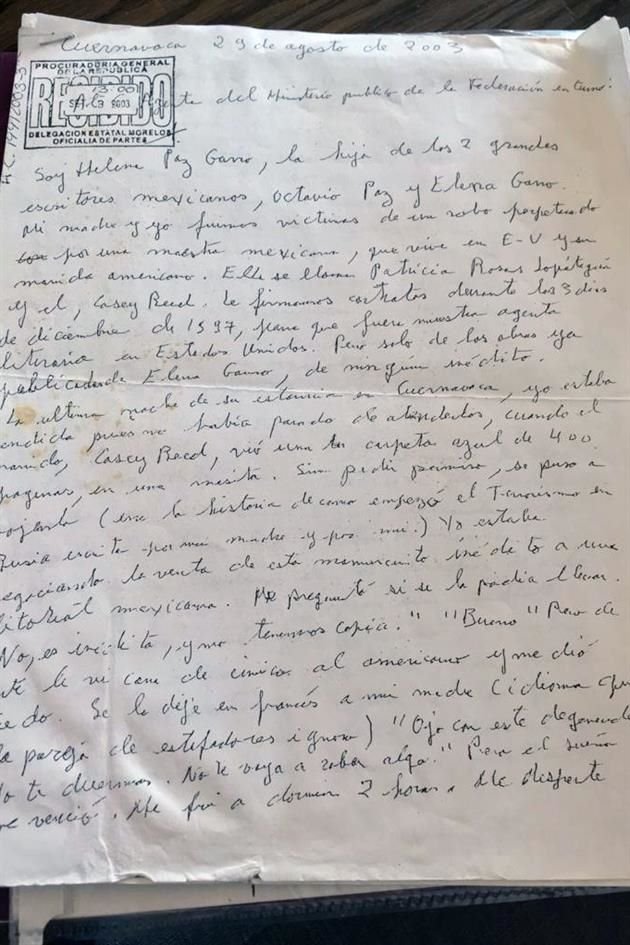 Cuernavaca 29 de agosto de 2003
PROCURADURIA GENERAL
DE LA REPUBLICA
RECIBIDO
13:00
SEP 3 2003
DELEGACION ESTATAL MORELOS
OFICIALIA DE PARTES
del Ministerio publico de la Federación en turno:
Soy Helena Paz Garro, la hija de los 2 grandes
escritores mexicanos, Octavio Paz y Elena Garro.
Mi madre y yo fuimos victimas de un robo perpetrado
por una maestra mexicana, que vive en E-U y su
marido americano. Ella se llama Patricia Rosas Lopátegui
y el, Casey Reed. Le firmamos contratos durante los 3 dias
de diciembre de 1997, para que fuera nuestra agente
literaria en Estados Unidos. Pero solo de las obras ya
publicadas de Elena Garro, de ningún inédito.
La ultima noche de su estancia en Cuernavaca, yo estaba
rendida pues no habia parado de atenderlos, cuando el
marido, Casey Reed, vió una carpeta azul de 400
paginas, en una mesita. Sin pedir permiso, se puso a
ojearla (era la historia de como empezó el Terrorismo en
Rusia escrita por mi madre y por mi.) Yo estaba
negociando la venta de este manuscrito inédito a una
editorial mexicana. Me preguntó si se la podia llevar.
"No, es inédita, y no tenemos copia." "Bueno" Pero de
le vi cara de cinico al americano y me dió
miedo. Se lo dije en francés a mi madre (idioma que
la pareja de estafadores ignora) "Ojo con este degenerado
No te duermas. No te vaya a robar algo." Pero el sueño
me venció. Me fui a dormir 2 horas. Me desperté